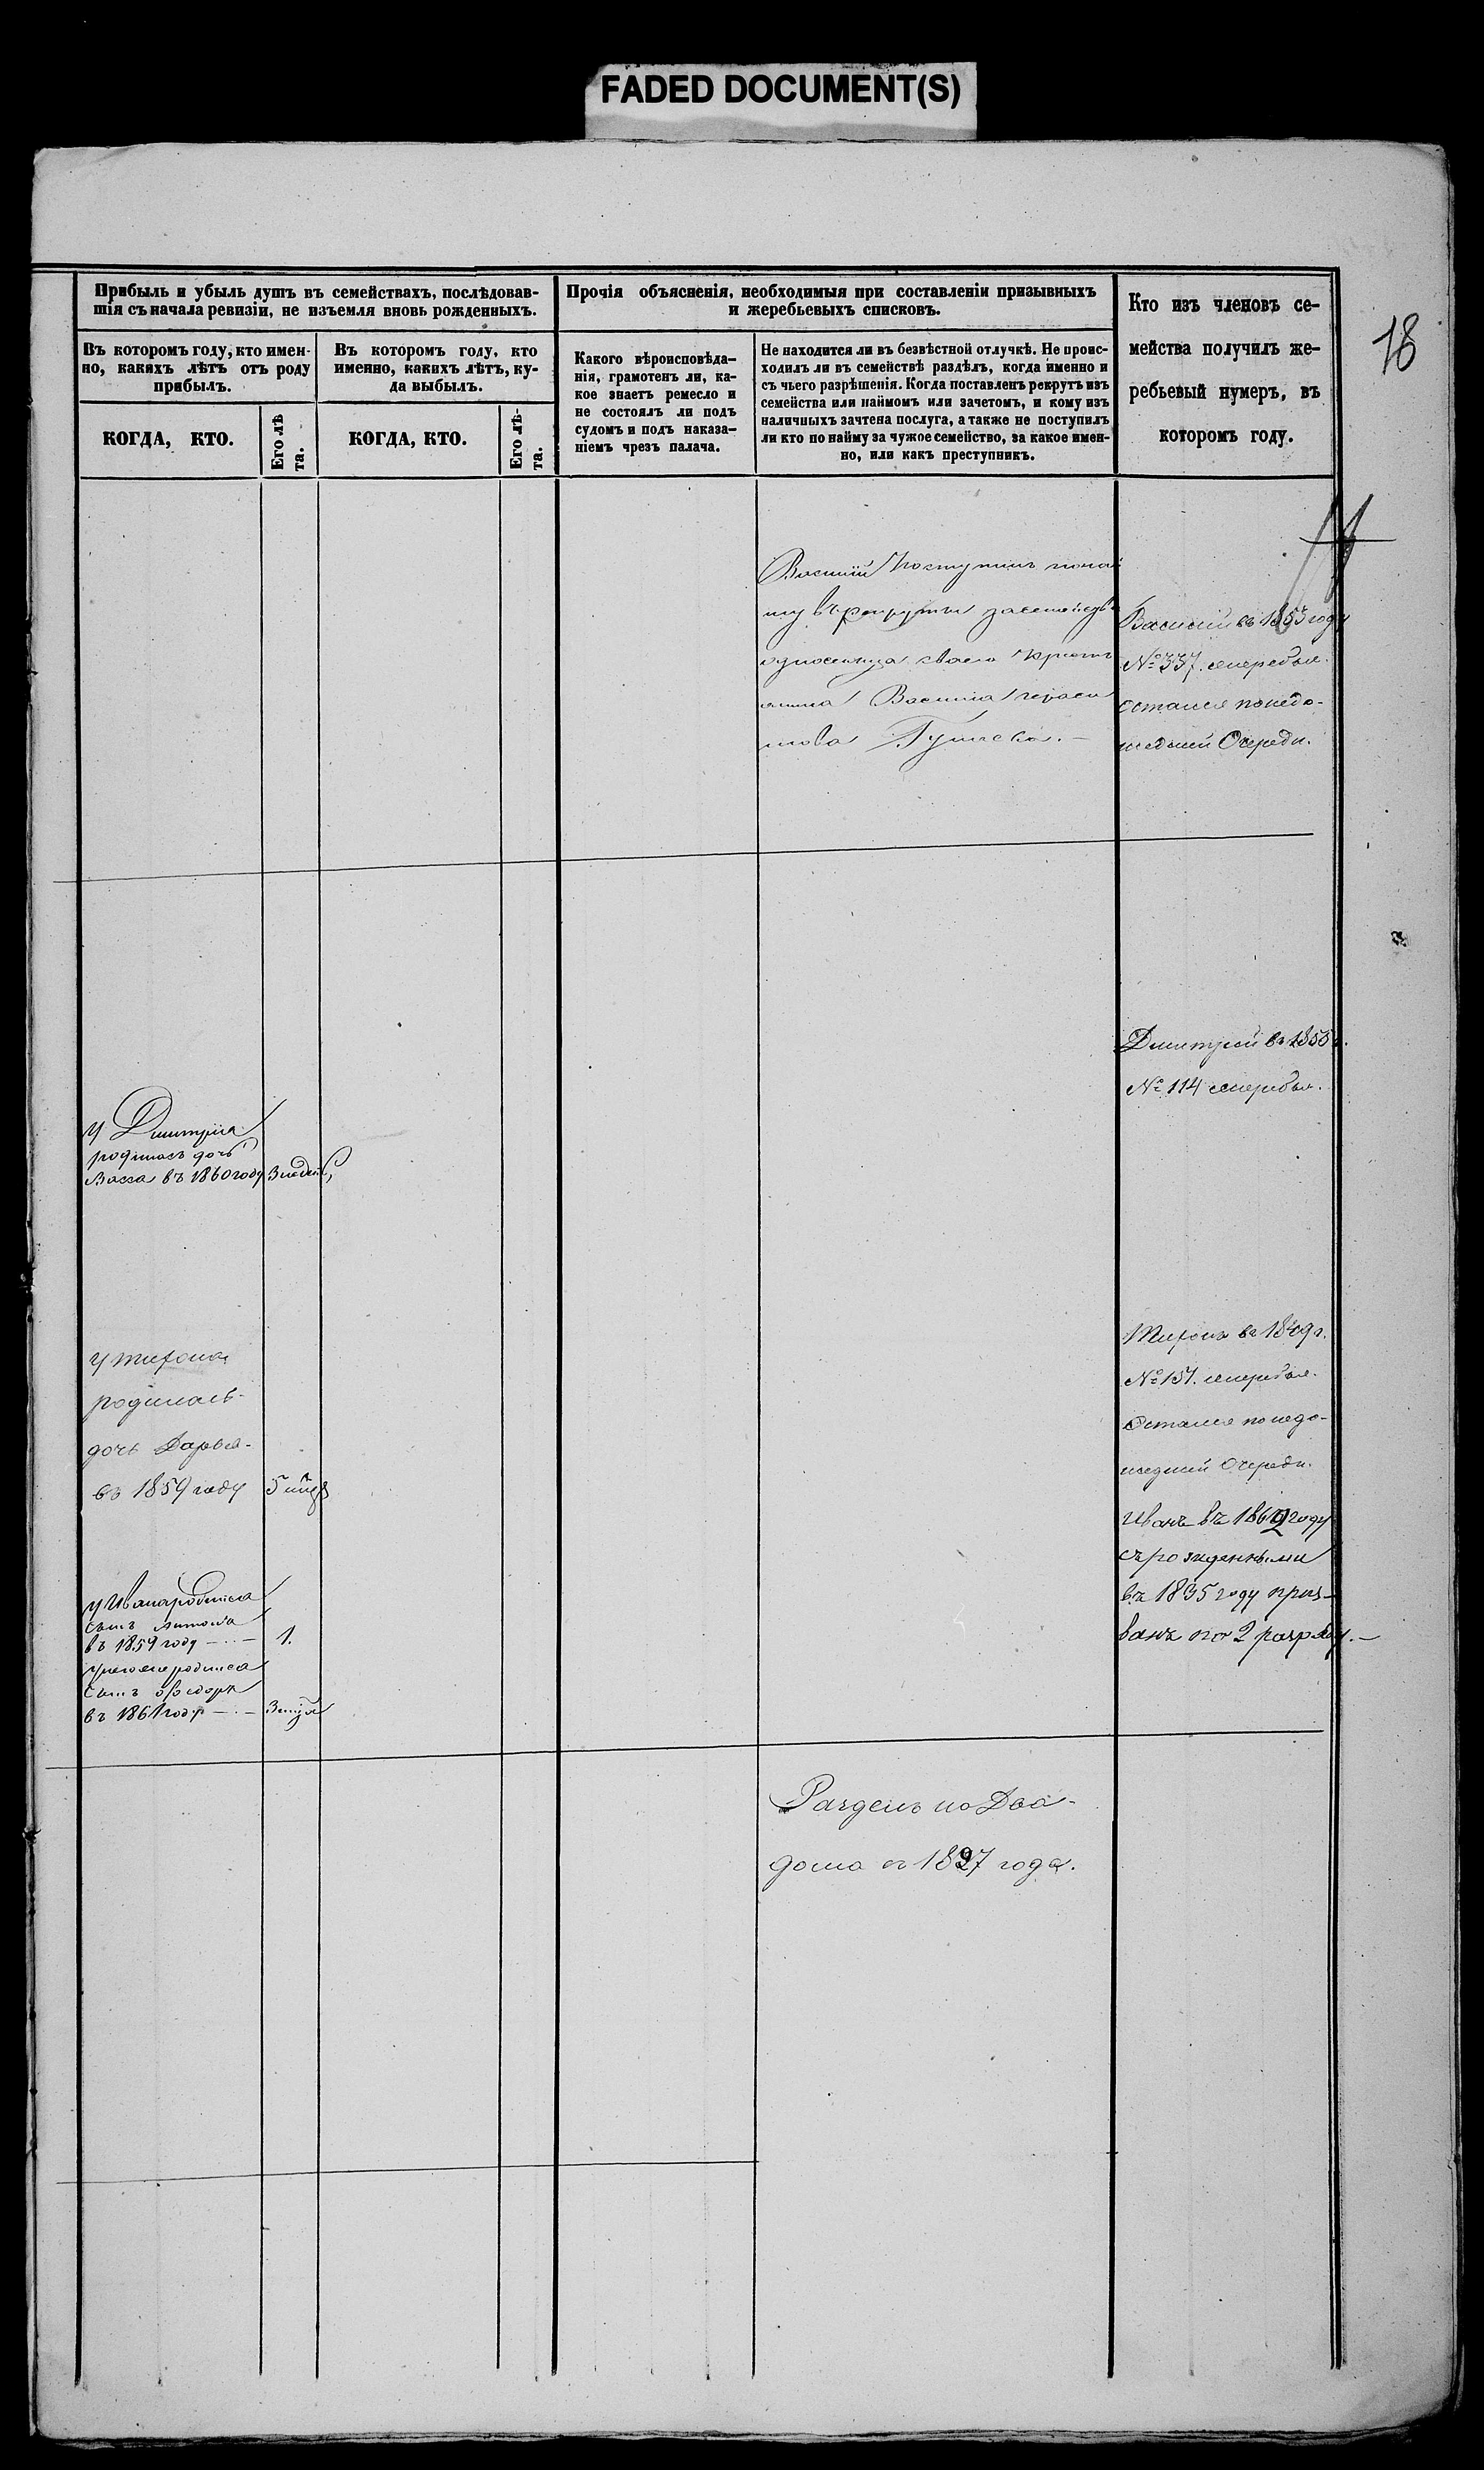 FADED DOCUMENT(S)
18
Прибыль и убыль душъ въ семействахъ, послѣдовав-
шія съ начала ревизіи, не изъемля вновь рожденныхъ.
Прочія объясненія, необходимыя при составленіи призывныхъ
и жеребьевыхъ списковъ.
Кто изъ членовъ се-
мейства получилъ же-
ребьевый нумеръ, въ
которомъ году.
Въ которомъ году, кто имен-
но, какихъ лѣтъ отъ роду
прибылъ.
Въ которомъ году, кто
именно, какихъ лѣтъ, ку-
да выбылъ.
Какого вѣроисповѣда-
нія, грамотенъ ли, ка-
кое знаетъ ремесло и
не состоялъ ли подъ
судомъ и подъ наказа-
ніемъ чрезъ палача.
Не находится ли въ безвѣстной отлучкѣ. Не проис-
ходилъ ли въ семействѣ раздѣлъ, когда именно и
съ чьего разрѣшенія. Когда поставленъ рекрутъ изъ
семейства или наймомъ или зачетомъ, и кому изъ
наличныхъ зачтена послуга, а также не поступилъ
ли кто по найму за чужое семейство, за какое имен-
но, или какъ преступникъ.
КОГДА, КТО.
Его лѣ
та.
КОГДА, КТО.
Его лѣ-
та.
Василій Поступилъ понай
му въ рекруты засемейств
односельца своего крест
янина Василія Гераси
мова
Василій въ 1853 году
№ 337. жеребья.
остался понедо-
шедшей Очереди.
Дмитрій въ 1855 г.
№ 114 жеребья.
У Дмитрія
родилась дочь
Васса въ 1860 году 3 недел
Тихонъ въ 1849 г.
№ 151. жеребья.
Остался понедо-
шедшей Очереди.
Иванъ въ 1862 году
съ рожденными
въ 1835 году приз-
ванъ по 2 разряду.
у Тихона
родилась
дочь Дарья
въ 1859 году 5
у Ивана родился
сынъ
въ 1859 году 1.
у него же родился
сынъ Ѳедоръ
въ 1861 году 3
Разделъ на Два
дома съ 1827 года.